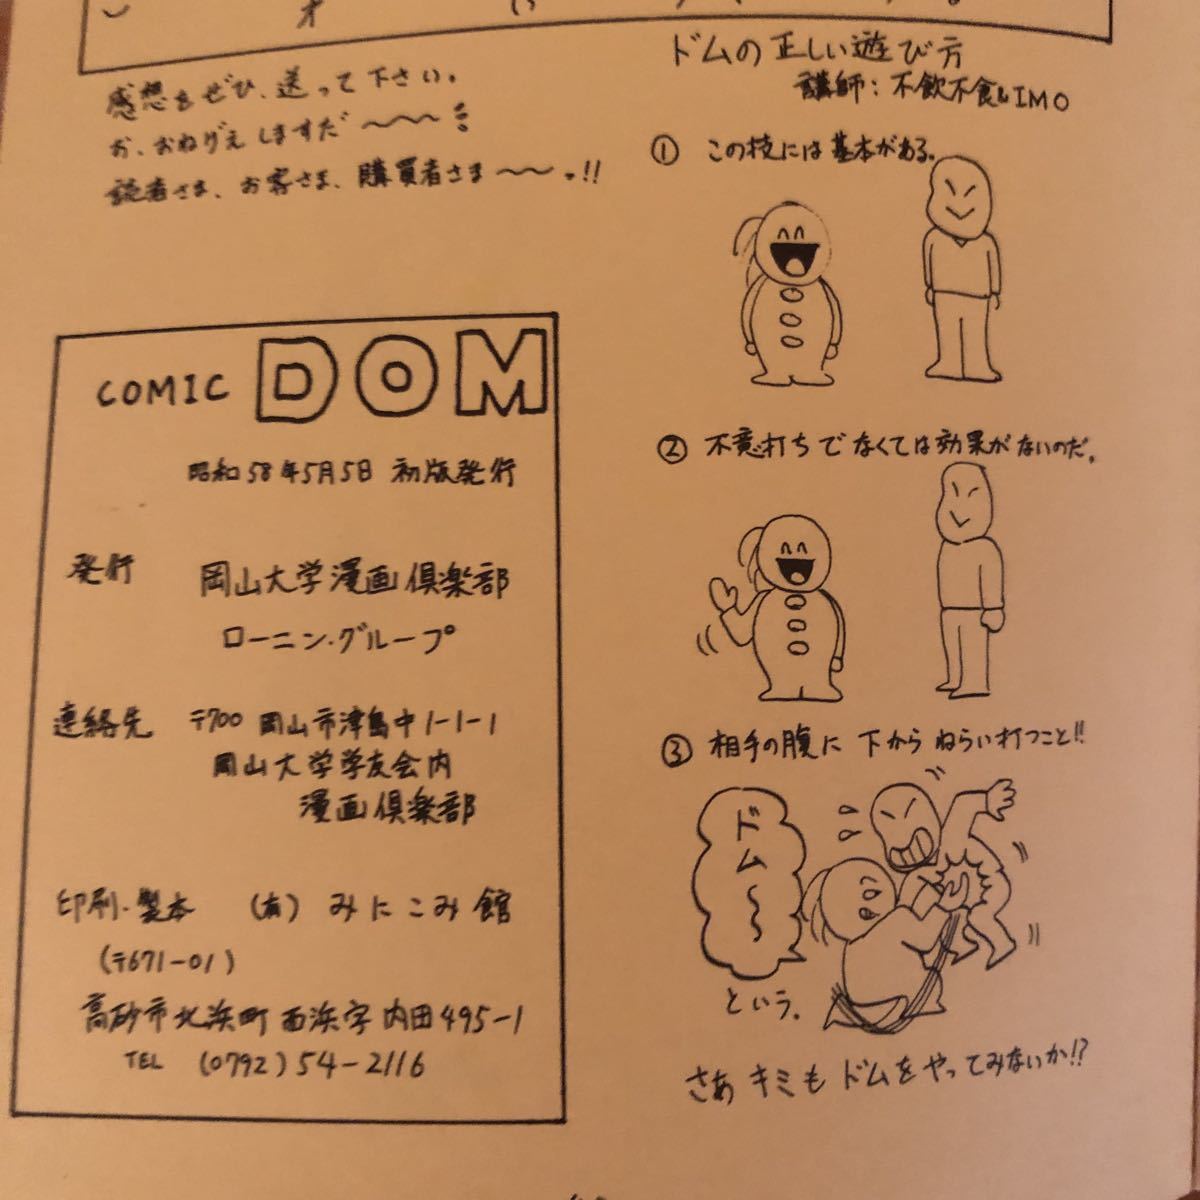 感想をぜひ、送って下さい。
お、おねげえしますだ〜〜〜!!
読者さま、お客さま、購買者さま〜〜。!!
COMIC DOM
昭和58年5月5日 初版発行
発行 岡山大学漫画倶楽部
ローニン・グループ
連絡先 〒700 岡山市津島中1-1-1
岡山大学学友会内
漫画倶楽部
印刷・製本 (有) みにこみ館
(〒671-01)
高砂市北浜町西浜字内田495-1
TEL (0792)54-2116
ドムの正しい遊び方
講師:不飲不食&IMO
① この技には基本がある。
② 不意打ちでなくては効果がないのだ。
③ 相手の腹に下からねらい打つこと!!
ドム〜〜
という。
さあキミもドムをやってみないか!?